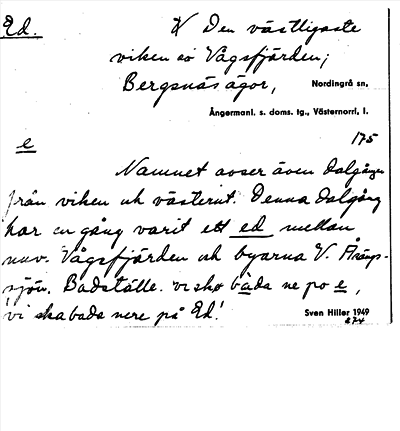 Ed. X Den västligaste
viken av Vågsfjärden;
Bergsnäs ägor, Nordingrå sn,
Ångermanl. s. doms. tg., Västernorrl. l.
e 175
Namnet avser även dalgången
från viken och västerut. Denna dalgång
har en gång varit ett ed mellan
nuv. Vågsfjärden och byarna V.
sjön. Badställe. vi sko båda ne po e,
vi ska bada nere på Ed!
Sven Hiller 1949
874